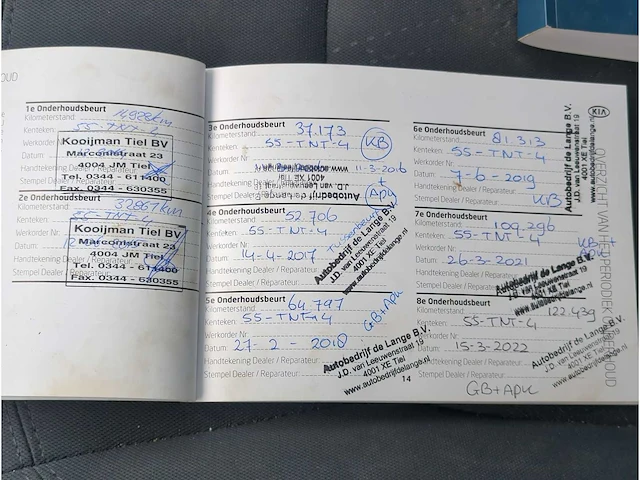 OUD
1e Onderhoudsbeurt
Kilometerstand: 14928km
Kenteken: 55-TNT-4
Werkorder Nr.
Datum:
Kooijman Tiel BV
Marconistraat 23
4004 JM Tiel
Tel. 0344 - 611400
Fax. 0344 - 630355
Stempel Dealer
2e Onderhoudsbeurt
Kilometerstand: 32867km
Kenteken: 55-TNT-4
Werkorder
Datum:
Kooijman Tiel BV
Marconistraat 23
4004 JM Tiel
Tel: 0344 - 611400
Fax. 0344 - 630355
3e Onderhoudsbeurt
Kilometerstand: 37.173
Kenteken: 55-TNT-4
KB
Werkorder Nr.
Datum: 11-3-2016
Handtekening Dealer
Stempel Dealer
+
APK
Autobedrijf de Lange B.V.
J.D. van Leeuwenstraat 19
4001 XE Tiel
www.autobedrijfdelange.nl
4e Onderhoudsbeurt
Kilometerstand: 52.706
Kenteken: 55-TNT-4
Werkorder Nr.
Datum: 14-4-2017
Handtekening Dealer / Reparateur:
Stempel Dealer / Reparateur:
Autobedrijf de Lange B.V.
J.D. van Leeuwenstraat 19
4001 XE Tiel
www.autobedrijfdelange.nl
5e Onderhoudsbeurt
Kilometerstand: 64.797
Kenteken: 55-TNT-4
GB+APK
Werkorder Nr.
Datum: 27-2-2018
Handtekening Dealer / Reparateur:
Stempel Dealer / Reparateur:
Autobedrijf de Lange B.V.
J.D. van Leeuwenstraat 19
4001 XE Tiel
www.autobedrijfdelange.nl
14
6e Onderhoudsbeurt
Kilometerstand: 81.313
Kenteken: 55-TNT-4
Werkorder Nr.
Datum: 7-6-2019
Handtekening Dealer / Reparateur:
Stempel Dealer / Reparateur: KB
Autobedrijf de Lange B.V.
J.D. van Leeuwenstraat 19
4001 XE Tiel
www.autobedrijfdelange.nl
KIA
7e Onderhoudsbeurt
Kilometerstand: 109.296
Kenteken: 55-TNT-4
KB+
Werkorder Nr.
Datum: 26-3-2021
Handtekening Dealer / Reparateur:
Stempel Dealer / Reparateur:
Autobedrijf de Lange B.V.
J.D. van Leeuwenstraat 19
4001 XE Tiel
8e Onderhoudsbeurt
Kilometerstand: 122.439
Kenteken: 55-TNT-4
Werkorder Nr.
Datum: 15-3-2022
Handtekening Dealer / Reparateur:
Stempel Dealer / Reparateur:
Autobedrijf de Lange B.V.
J.D. van Leeuwenstraat 19
4001 XE Tiel
www.autobedrijfdelange.nl
GB+APK